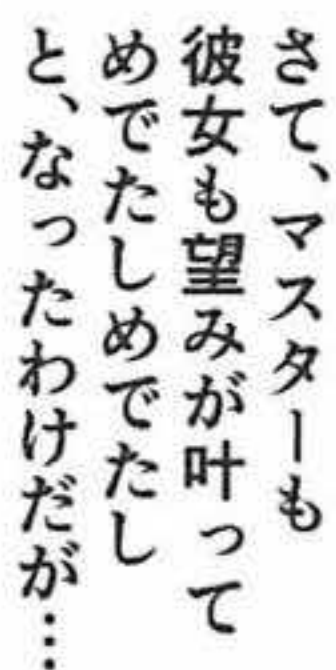 さて、マスターも
彼女も望みが叶って
めでたしめでたし
と、なったわけだが…